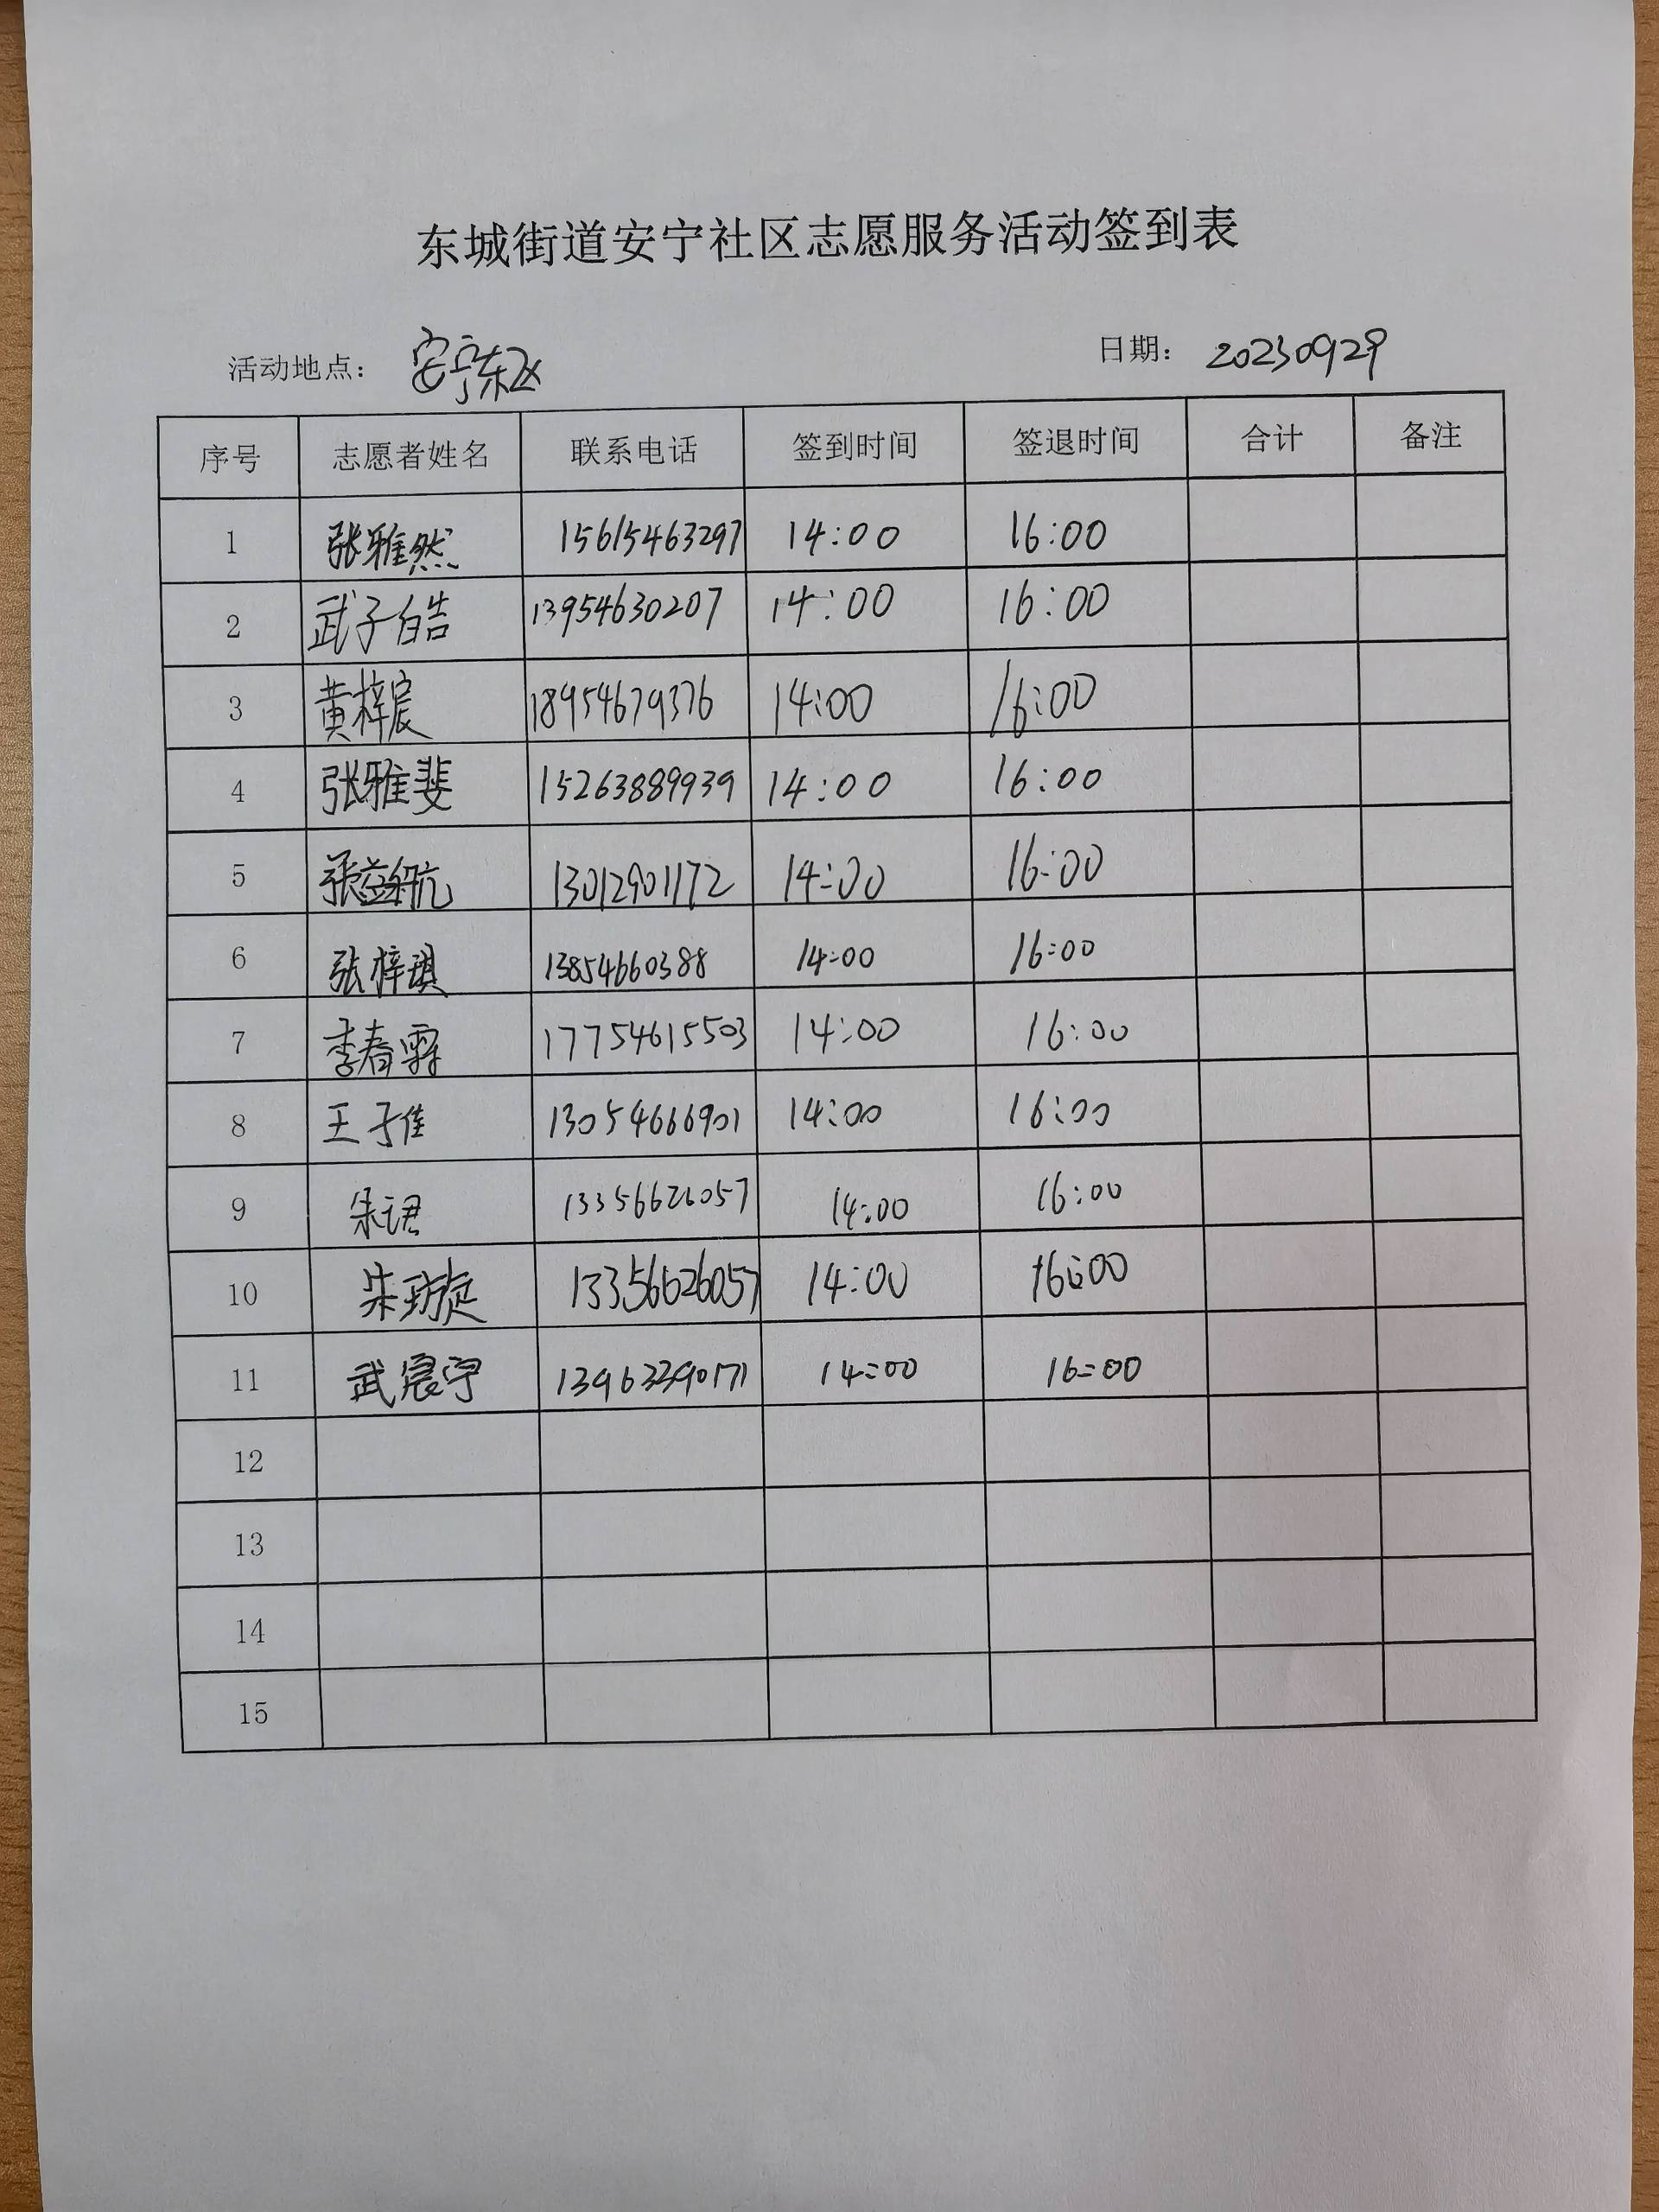 东城街道安宁社区志愿服务活动签到表
活动地点： 安宁东区 日期： 20230929
序号 志愿者姓名 联系电话 签到时间 签退时间 合计 备注
1 张雅然 15615463297 14:00 16:00
2 武子皓 13954630207 14:00 16:00
3 黄梓宸 18954679376 14:00 16:00
4 张雅斐 15263889939 14:00 16:00
5 张益航 13012901172 14:00 16:00
6 张梓琪 13854660388 14:00 16:00
7 李春霖 17754615503 14:00 16:00
8 王子佳 13054666901 14:00 16:00
9 朱珺 13356626057 14:00 16:00
10 朱 13356626057 14:00 16:00
11 武宸宇 14:00 16:00
12
13
14
15